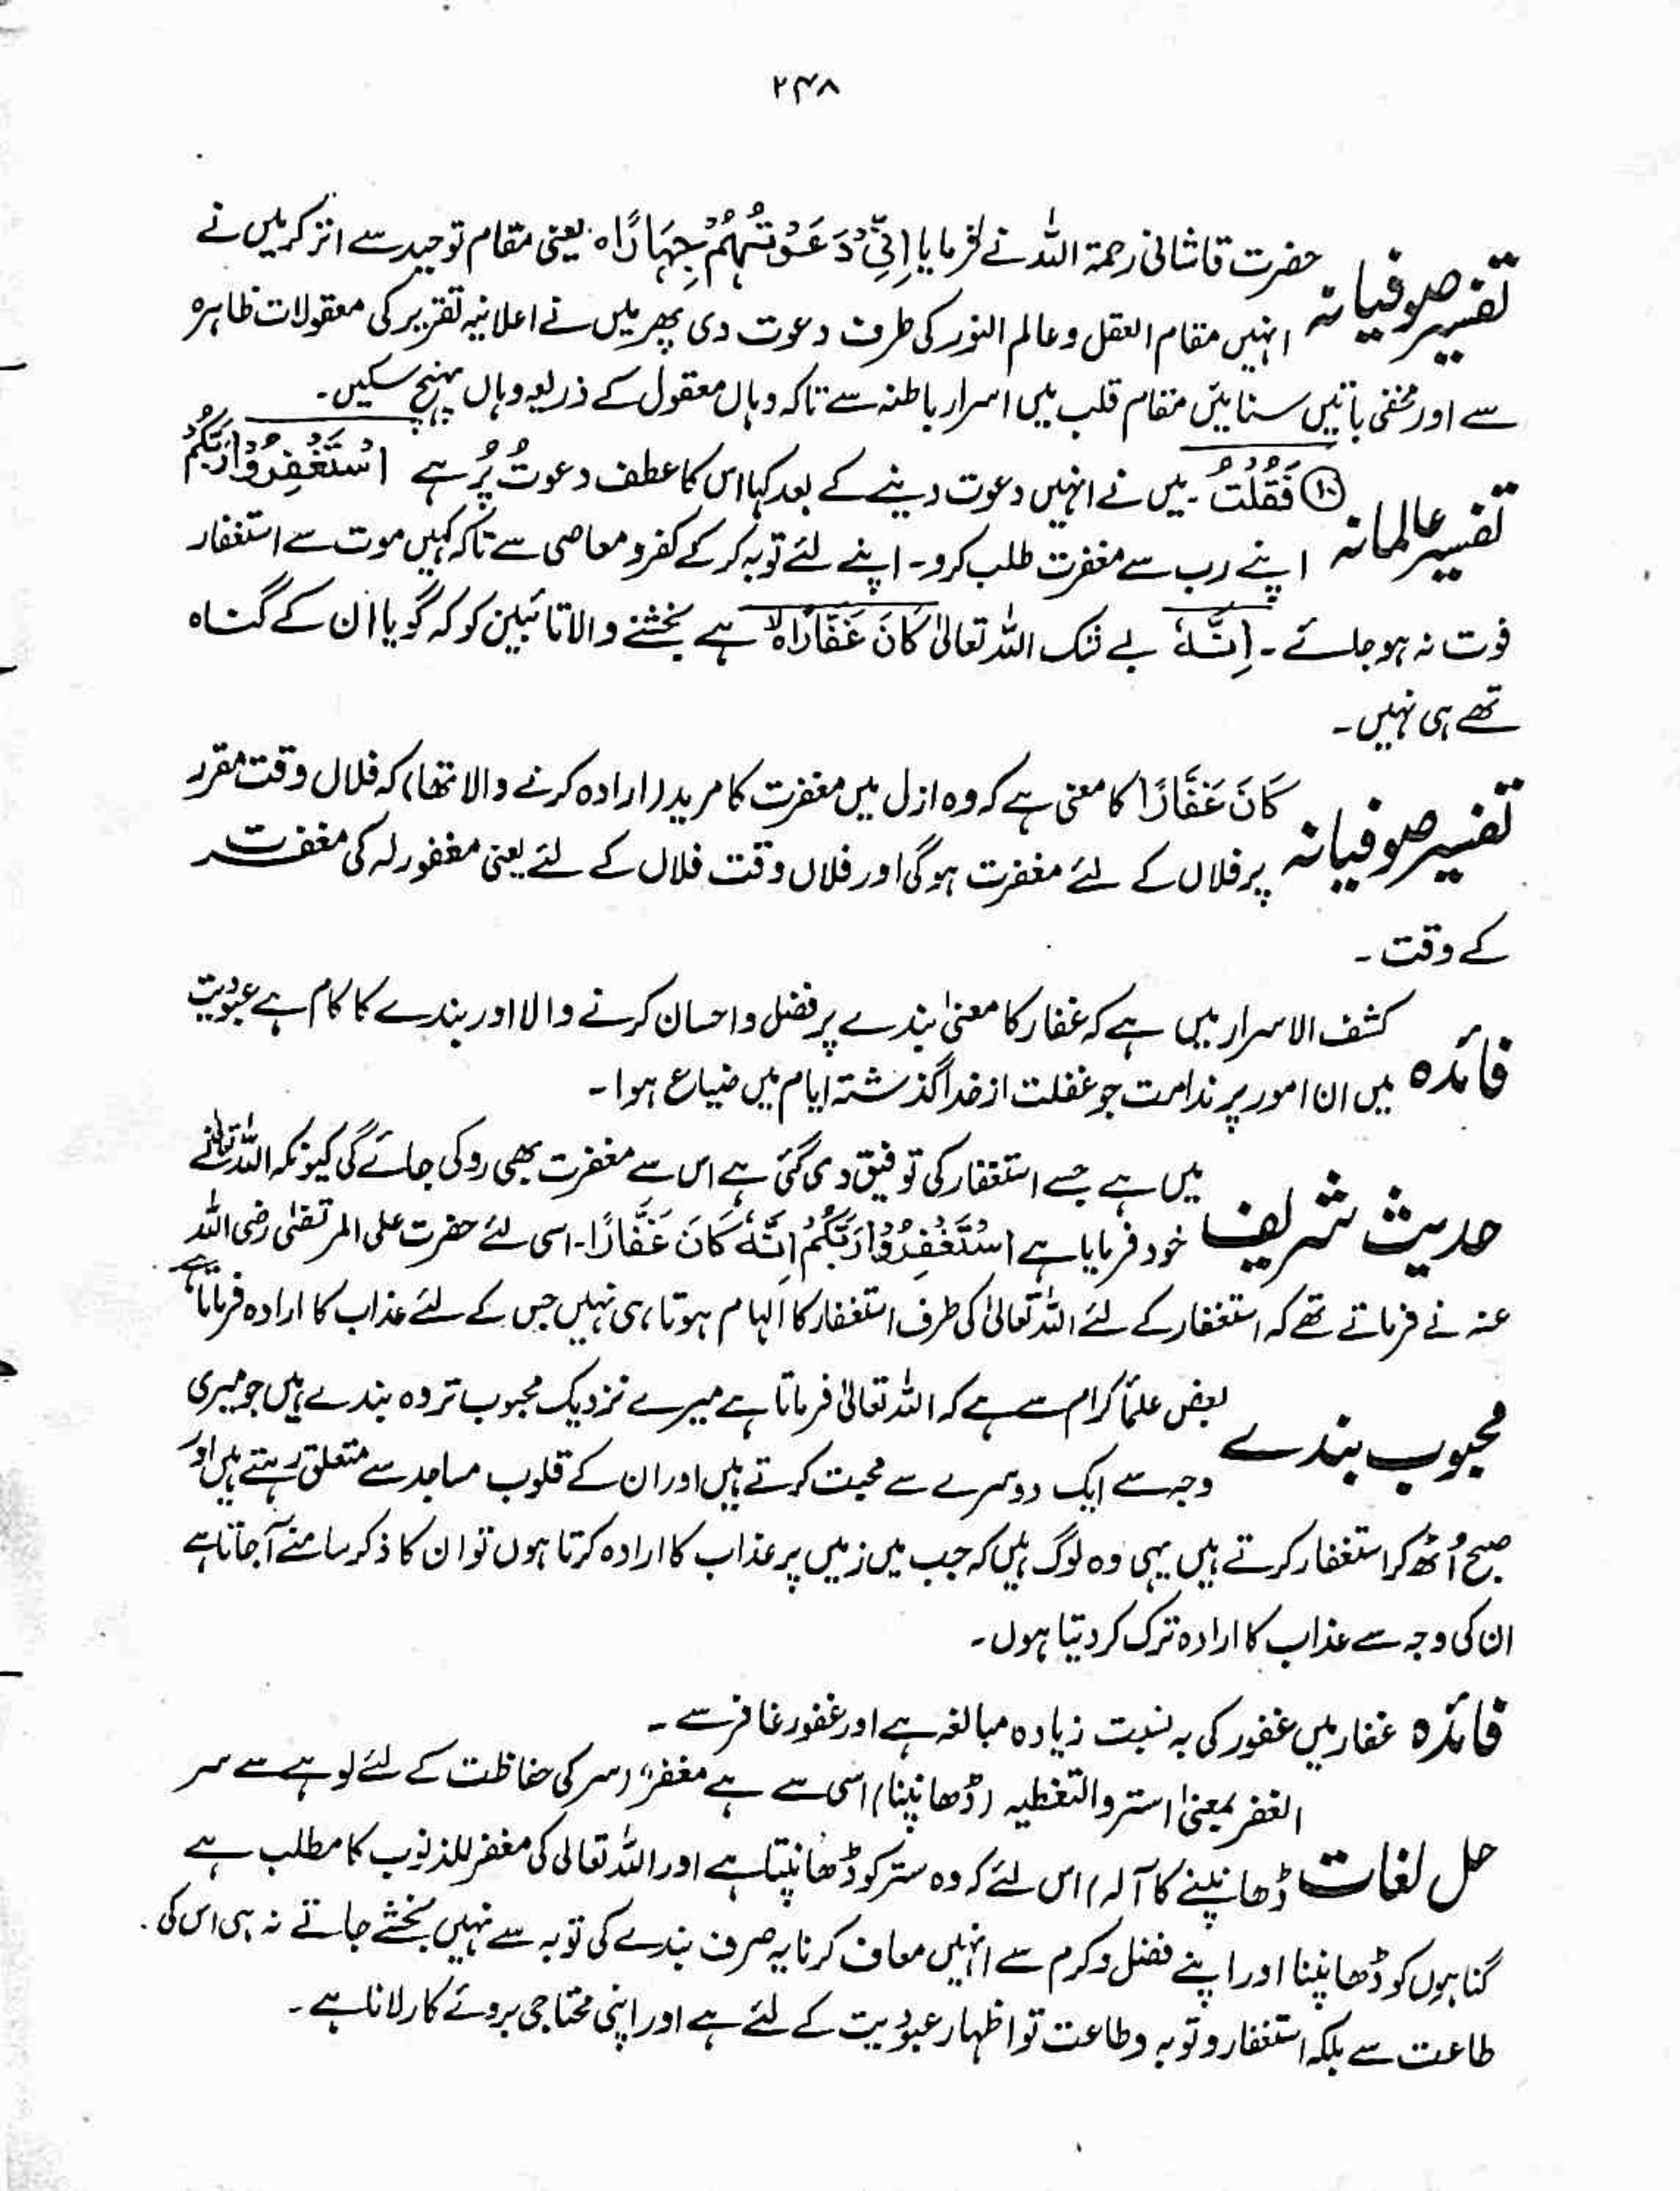 ۲۴۸
تفسیر صوفیانہ حضرت قاشانی رحمۃ اللہ نے فرمایا اِنِّیْ دَعَوْتُہُمْ جِہَارًا ہ یعنی مقام توحید سے اتر کر میں نے
انہیں مقام العقل و عالم النور کی طرف دعوت دی پھر میں نے اعلانیہ تقریر کی معقولات ظاہرہ
سے اور مخفی باتیں سنائیں مقام قلب میں اسرار باطنہ سے تاکہ وہاں معقول کے ذریعہ وہاں پہنچ سکیں۔
تفسیر عالمانہ ⑩ فَقُلْتُ ۔ میں نے انہیں دعوت دینے کے بعد کہا اس کا عطف دعوتُ پُر ہے اسْتَغْفِرُوْا رَبَّکُمْ
اپنے رب سے مغفرت طلب کرو۔ اپنے لئے توبہ کر کے کفر و معاصی سے تاکہ کہیں موت سے استغفار
فوت نہ ہو جائے۔ اِنَّہٗ بے شک اللہ تعالیٰ کَانَ غَفَّارًا ہ لا ہے بخشنے والا تائبین کو کہ گویا ان کے گناہ
تھے ہی نہیں۔
تفسیر صوفیانہ کَانَ غَفَّارًا کا معنی ہے کہ وہ ازل میں مغفرت کا مرید (ارادہ کرنے والا تھا) کہ فلاں وقت مقرر
پر فلاں کے لئے مغفرت ہوگی اور فلاں وقت فلاں کے لئے یعنی مغفور لہ کی مغفرت
کے وقت۔
فائدہ کشف الاسرار میں ہے کہ غفار کا معنیٰ بندے پر فضل و احسان کرنے والا اور بندے کا کام ہے عبودیت
میں ان امور پر ندامت جو غفلت از خدا گذشتہ ایام میں ضیاع ہوا۔
حدیث شریف میں ہے جسے استغفار کی توفیق دی گئی ہے اس سے مغفرت بھی روکی جائے گی کیونکہ اللہ تعالیٰ نے
خود فرمایا ہے اسْتَغْفِرُوْا رَبَّکُمْ اِنَّہٗ کَانَ غَفَّارًا۔ اسی لئے حضرت علی المرتضٰی رضی اللہ
عنہ نے فرماتے تھے کہ استغفار کے لئے اللہ تعالیٰ کی طرف استغفار کا الہام ہوتا ہی نہیں جس کے لئے عذاب کا ارادہ فرماتا ہے
محبوب بندے بعض علمأ کرام سے ہے کہ اللہ تعالیٰ فرماتا ہے میرے نزدیک محبوب تر وہ بندے ہیں جو میری
وجہ سے ایک دوسرے سے محبت کرتے ہیں اور ان کے قلوب مساجد سے متعلق رہتے ہیں اور
صبح اُٹھ کر استغفار کرتے ہیں یہی وہ لوگ ہیں کہ جب میں زمیں پر عذاب کا ارادہ کرتا ہوں تو ان کا ذکر سامنے آجاتا ہے
ان کی وجہ سے عذاب کا ارادہ ترک کر دیتا ہوں۔
فائدہ غفار میں غفور کی بہ نسبت زیادہ مبالغہ ہے اور غفور غافر سے ۔
حل لغات الغفر بمعنیٰ استر والتغطیہ (ڈھانپنا) اسی سے ہے مغفرٌ (سر کی حفاظت کے لئے لوہے سے سر
ڈھانپنے کا آلہ) اس لئے کہ وہ ستر کو ڈھانپتا ہے اور اللہ تعالیٰ کی مغفر للذنوب کا مطلب ہے
گناہوں کو ڈھانپنا اور اپنے فضل و کرم سے انہیں معاف کرنا یہ صرف بندے کی توبہ سے نہیں بخشے جاتے نہ ہی اس کی
طاعت سے بلکہ استغفار و توبہ و طاعت تو اظہار عبودیت کے لئے ہے اور اپنی محتاجی بروئے کار لانا ہے۔